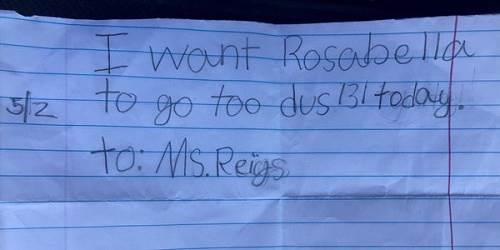 I want Rosabella
5/2 to go too dus 131 today.
to: Ms. Reigs